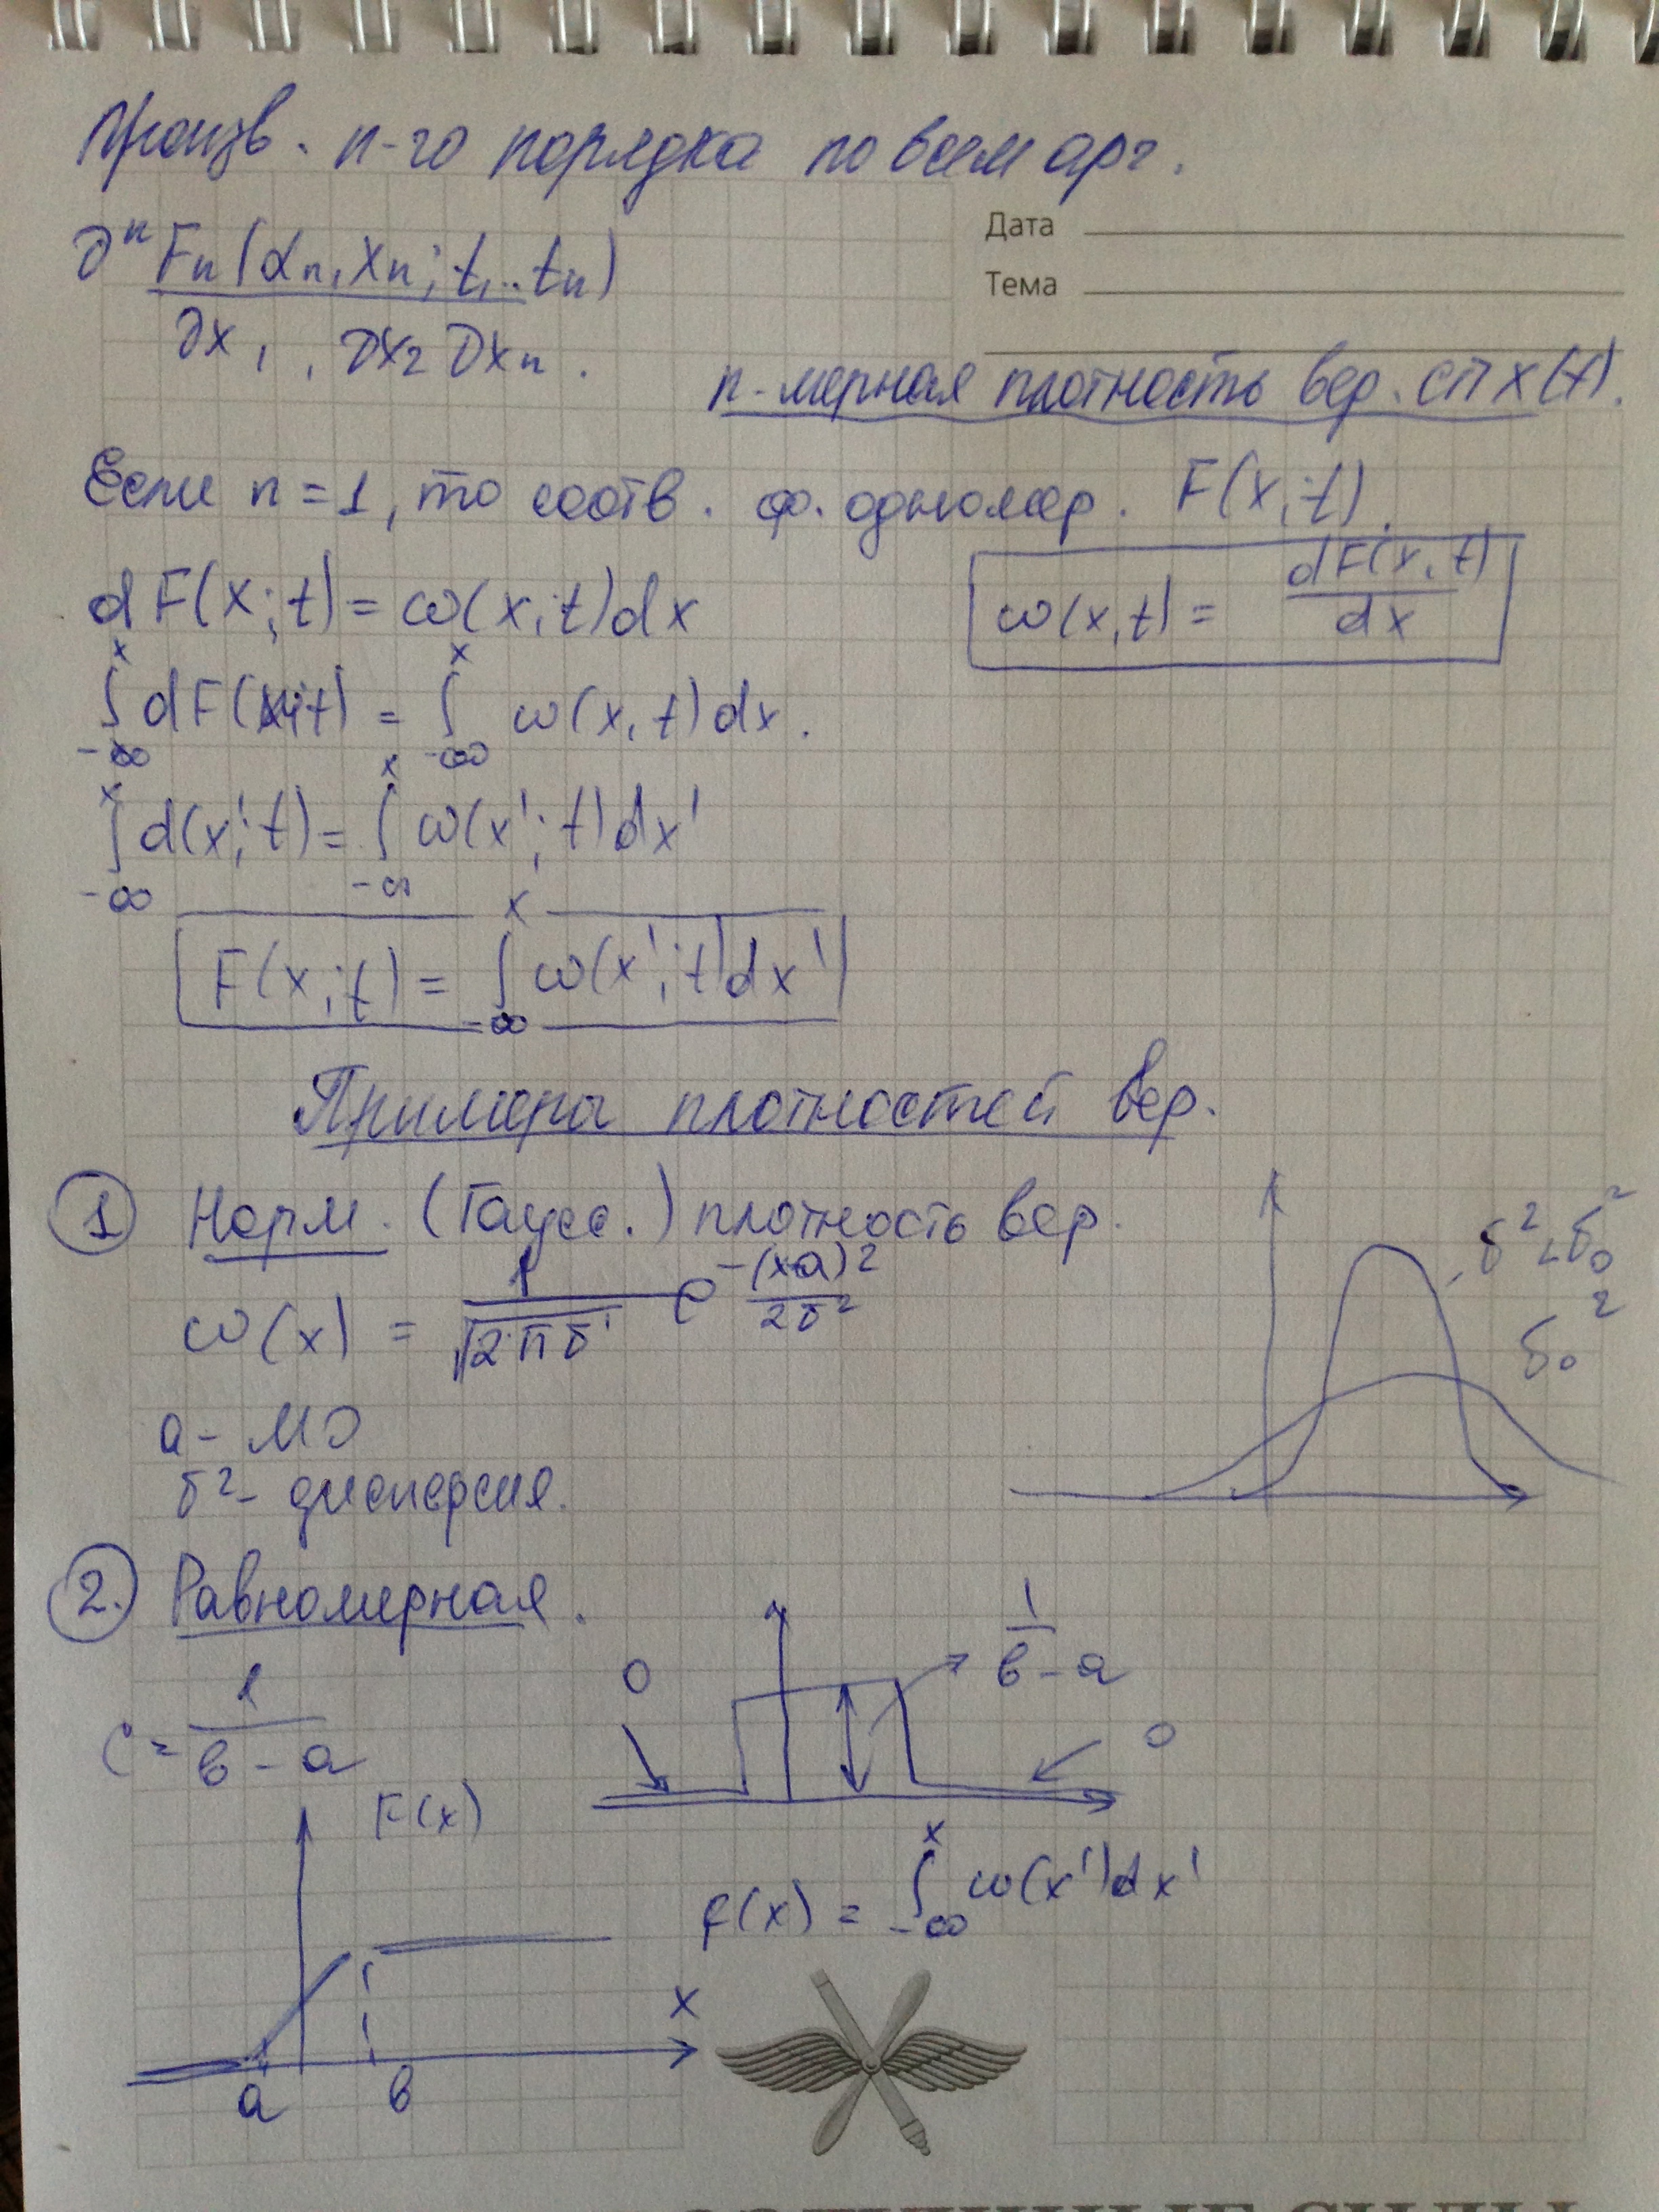 Произв. n-го порядка по всем арг.
Дата
∂ⁿFₙ(αₙ, xₙ; t, .. tₙ)
Тема
∂x₁, ∂x₂ ∂xₙ.
n-мерная плотность вер. СП x(t).
Если n = 1, то соотв. ф. одномер. F(x; t).
dF(x; t) = ω(x; t)dx
ω(x, t) = dF(x, t) / dx
∫_{-∞}^{x} dF(x; t) = ∫_{-∞}^{x} ω(x, t)dx.
∫_{-∞}^{x} d(x'; t) = ∫_{-∞}^{x} ω(x'; t)dx'
F(x; t) = ∫_{-∞}^{x} ω(x'; t)dx'
Примеры плотностей вер.
① Норм. (Гаусс.) плотность вер.
σ² < σ₀²
ω(x) = 1/√2πσ e^{-(x-a)²/2σ²}
σ₀²
a - МО
σ² - дисперсия.
2. Равномерная.
0
1/в - a
C = 1/в - a
0
F(x)
f(x) = ∫_{-∞}^{x} ω(x')dx'
x
a в